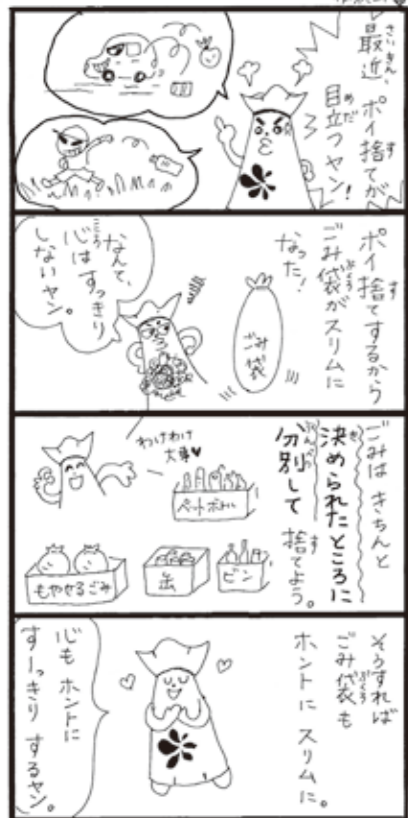 最近、ポイ捨てが
目立つヤン!
ポイ捨てするから
ごみ袋がスリムに
なった!
ごみ袋
なんて、
心はすっきり
しないヤン。
ごみは きちんと
決められたところに
分別して 捨てよう。
わけわけ
大事♥
ペットボトル
もやせるごみ
缶
ビン
そうすれば
ごみ袋も
ホントに スリムに。
心も ホントに
すーっきり するヤン。